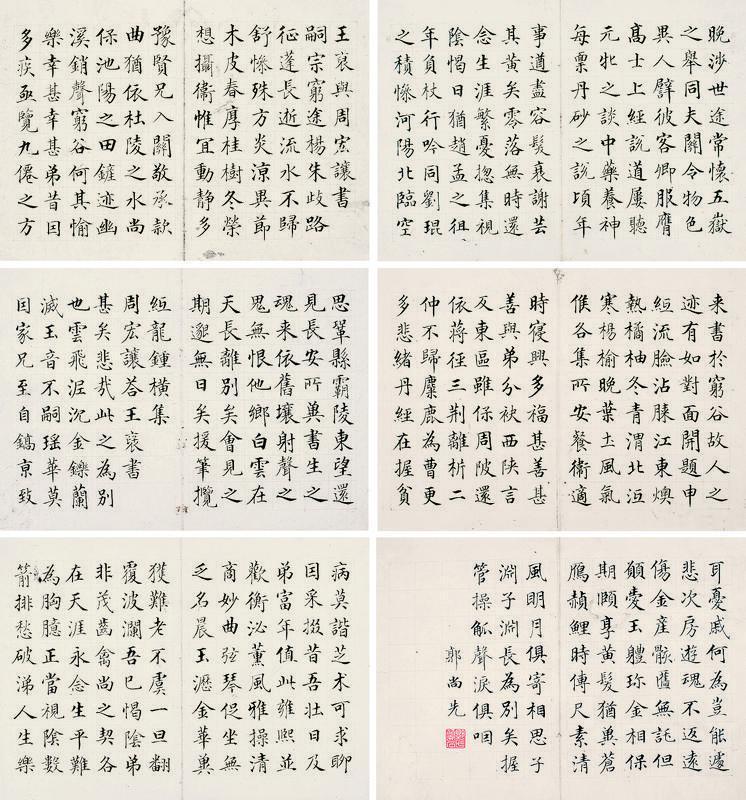 王裒與周宏讓書
嗣宗窮途楊朱歧路
征蓬長逝流水不歸
舒慘殊方炎涼異節
木皮春厚桂樹冬榮
想攝衞惟宜動靜多
豫賢兄入關敬承款
曲猶依杜陵之水尚
保池陽之田鏟迹幽
溪銷聲窮谷何其愉
樂幸甚幸甚弟昔因
多疾亟覽九僊之方
晚涉世途常懷五嶽
之舉同夫關令物色
異人譬彼客卿服膺
高士上經說道屢聽
元牝之談中藥養神
每稟丹砂之說頃年
事道盡容髮衰謝芸
其黃矣零落無時還
念生涯繁憂揔集視
陰愒日猶趙孟之徂
年負杖行吟同劉琨
之積慘河陽北臨空
思鞏縣霸陵東望還
見長安所冀書生之
魂來依舊壤射聲之
鬼無恨他鄉白雲在
天長離別矣會見之
期邈無日矣援筆攬
紙龍鍾橫集
周宏讓荅王裒書
甚矣悲哉此之為別
也雲飛泥沉金鑠蘭
滅玉音不嗣瑤華莫
因家兄至自鎬京致
來書於窮谷故人之
迹有如對面開題申
紙流臉沾膝江東燠
熱橘柚冬青渭北沍
寒楊榆晚葉土風氣
候各集所安餐衞適
時寢興多福甚善甚
善與弟分袂西陝言
反東區雖保周陂還
依蔣徑三荆離析二
仲不歸麋鹿為曹更
多悲緒丹經在握貧
病莫諧芝朮可求聊
因采掇昔吾壯日及
弟富年值此雍熙並
歡衡泌薰風雅操清
商妙曲弦琴促坐無
乏名晨玉瀝金華冀
獲難老不虞一旦翻
覆波瀾吾已愒陰弟
非茂齒禽尚之契各
在天涯永念生平難
為胸臆正當視陰數
箭排愁破涕人生樂
耳憂戚何為豈能遽
悲次房遊魂不返遠
傷金產骸匶無託但
願愛玉體珍金相保
期頤享黃髮猶冀蒼
鴈赬鯉時傳尺素清
風明月俱寄相思子
淵子淵長為別矣握
管操觚聲淚俱咽
郭尚先